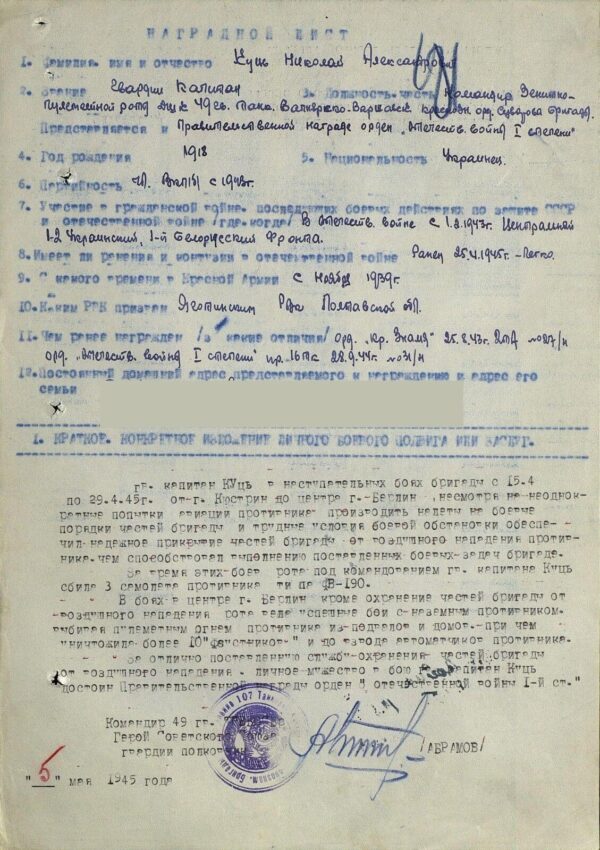 НАГРАДНОЙ ЛИСТ
1. Фамилия, имя и отчество Куць Николай Александрович
2. Звание Гвардии Капитан 3. Должность, часть Командир Зенитно-
пулеметной роты 49 гв. Танк. Валнярско-Варшавск. Краснозн. орд. Суворова бригады.
Представляется к Правительственной награде орден „Отечеств. войны I степени"
4. Год рождения 1918 5. Национальность Украинец.
6. Партийность Чл. ВКП(б) с 1943г.
7. Участие в гражданской войне, последующих боевых действиях по защите СССР
и отечественной войне /где, когда/ В Отечеств. войне с 1.2.1943г. Центральный
1-2 Украинский, 1-й Белорусский Фронта.
8. Имеет ли ранения и контузии в отечественной войне Ранен 25.4.1945г. - Легко.
9. С какого времени в Красной Армии с Ноября 1939г.
10. Каким РВК призван Яготинским РВК Полтавской обл.
11. Чем ранее награжден /за какие отличия/ орд. „Кр. Знамя" 25.8.43г. 2ТА №27/н
орд. „Отечеств. войны I степени" пр. 16ТК 28.9.44г. №31/н
12. Постоянный домашний адрес представляемого к награждению и адрес его
семьи
1. КРАТКОЕ, КОНКРЕТНОЕ ИЗЛОЖЕНИЕ ЛИЧНОГО БОЕВОГО ПОДВИГА ИЛИ ЗАСЛУГ.
гв. капитан КУЦЬ в наступательных боях бригады с 15.4
по 29.4.45г. от г. Кюстрин до центра г. Берлин, несмотря на неоднок-
ратные попытки авиации противника производить налеты на боевые
порядки частей бригады и трудные условия боевой обстановки обеспе-
чил надежное прикрытие частей бригады от воздушного нападения против-
ника, чем способствовал выполнению поставленных боевых задач бригаде.
За время этих боев рота под командованием гв. капитана Куць
сбила 3 самолета противника типа ФВ-190.
В боях в центре г. Берлин кроме охранение частей бригады от
воздушного нападения рота вела успешные бои с наземным противником,
выбивая пулеметным огнем противника из подвалов и домов, при чем
уничтожила более 10 "фаустников" и до взвода автоматчиков противника.
За отлично поставленную службу охранения частей бригады
от воздушного нападения, личное мужество в бою гв. капитан Куць
достоин Правительственной награды орден "Отечественной войны I-й ст."
Командир 49 гв.
Герой Советского
гвардии полковник /АБРАМОВ/
"5" мая 1945 года